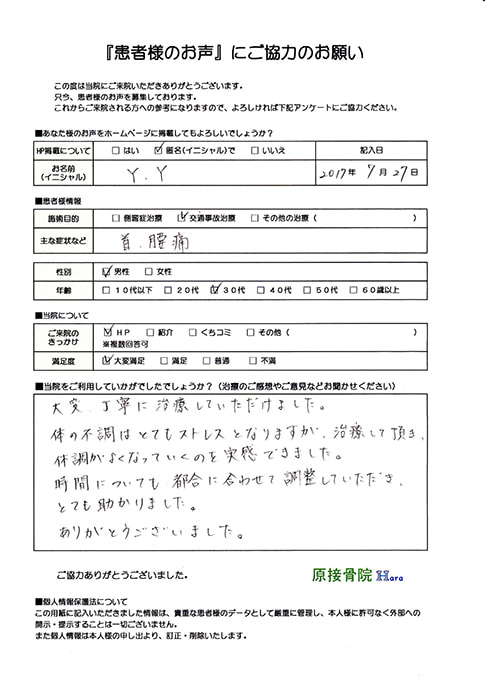 『患者様のお声』にご協力のお願い
この度は当院にご来院いただきありがとうございます。
只今、患者様のお声を募集しております。
これからご来院される方への参考になりますので、よろしければ下記アンケートにご協力ください。
■あなた様のお声をホームページに掲載してもよろしいでしょうか？
HP掲載について □ はい ☑ 匿名(イニシャル)で □ いいえ 記入日
お名前 (イニシャル) Y.Y 2017年 7月 27日
■患者様情報
施術目的 □ 側弯症治療 ☑ 交通事故治療 □ その他の治療 ( )
主な症状など 首、腰痛
性別 ☑ 男性 □ 女性
年齢 □ 10代以下 □ 20代 ☑ 30代 □ 40代 □ 50代 □ 60歳以上
■当院について
ご来院のきっかけ ☑ HP □ 紹介 □ くちコミ □ その他 ( )
※複数回答可
満足度 ☑ 大変満足 □ 満足 □ 普通 □ 不満
■当院をご利用していかがでしたでしょうか？（治療のご感想やご意見などお聞かせください）
大変、丁寧に治療していただけました。
体の不調はとてもストレスとなりますが、治療して頂き、
体調がよくなっていくのを実感できました。
時間についても都合に合わせて調整していただき、
とても助かりました。
ありがとうございました。
ご協力ありがとうございました。
原接骨院 Hara
■個人情報保護法について
この用紙に記入いただきました情報は、貴重な患者様のデータとして厳重に管理し、本人様に許可なく外部への
開示・提示することは一切ございません。
また個人情報は本人様の申し出より、訂正・削除いたします。